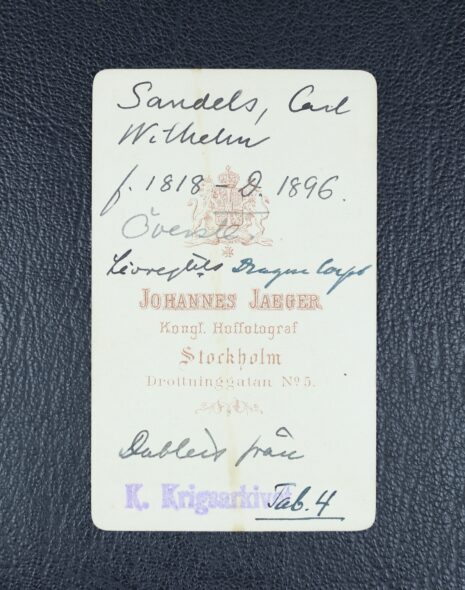 Sandels, Carl
Wilhelm
f. 1818 - D. 1896.
Överste
Livregtets Dragon Corps
JOHANNES JAEGER
Kongl. Hoffotograf
Stockholm
Drottninggatan No 5.
Dublett från
K. Krigsarkivet
Tab. 4